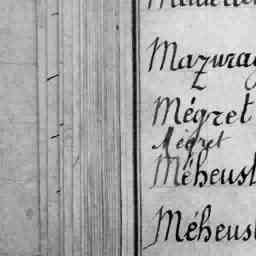 Mazura
Mégret
Mégret
Méheust
Méheust